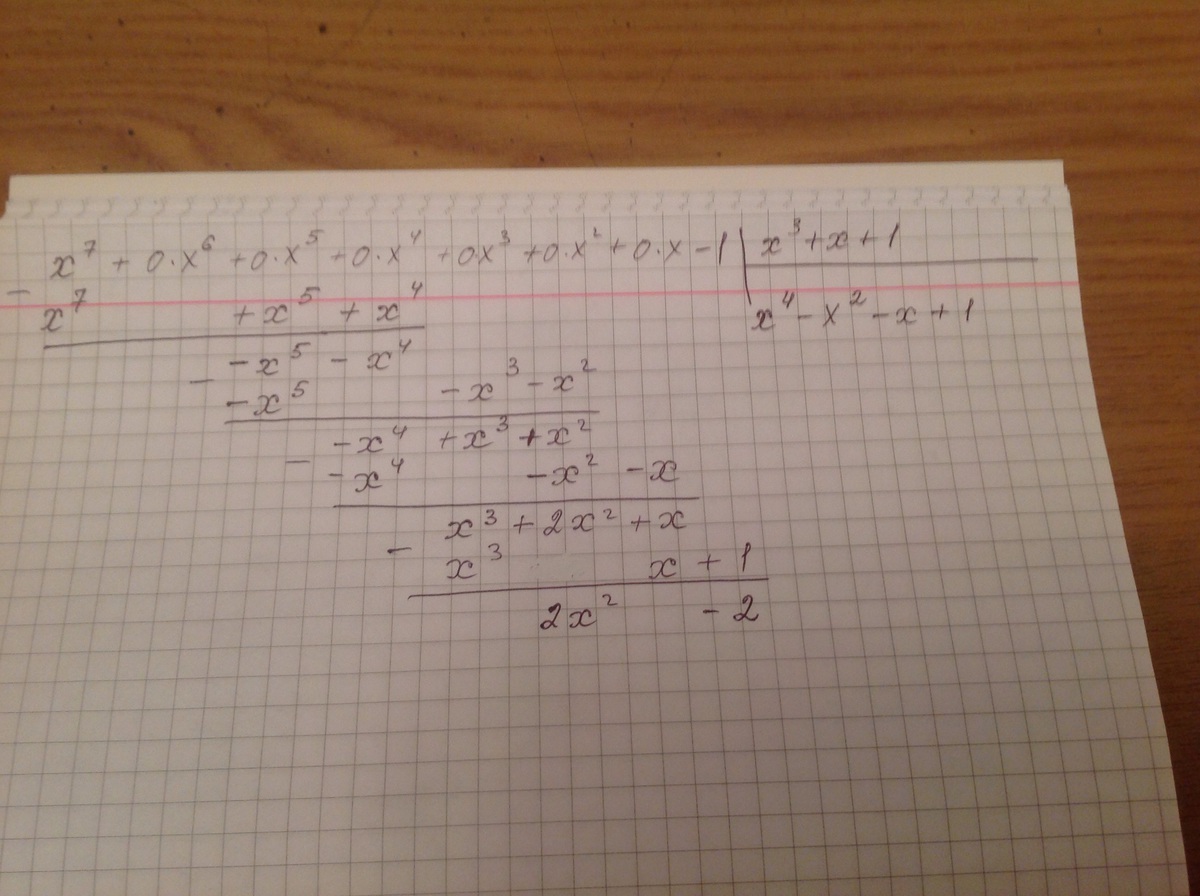 x⁷ + 0·x⁶ + 0·x⁵ + 0·x⁴ + 0x³ + 0·x² + 0·x - 1 | x³ + x + 1
-
x⁷ + x⁵ + x⁴ x⁴ - x² - x + 1
- x⁵ - x⁴
-
- x⁵ - x³ - x²
- x⁴ + x³ + x²
-
- x⁴ - x² - x
x³ + 2x² + x
-
x³ x + 1
2x² - 2